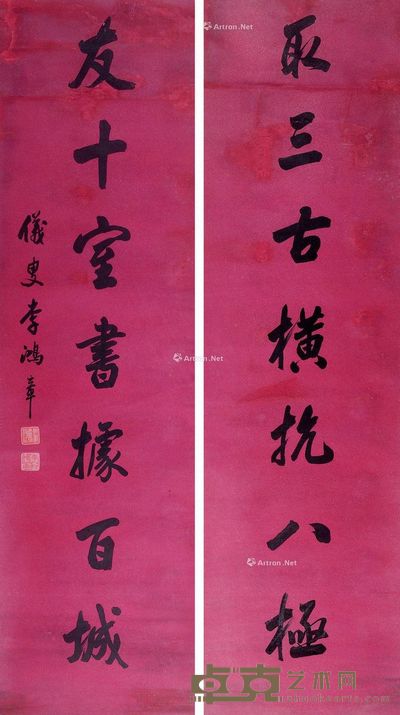 取三古橫抗八極
友十室書據百城
儀叟李鴻章
Artron.Net
Artron.Net
Artron.Net
卓克艺术网